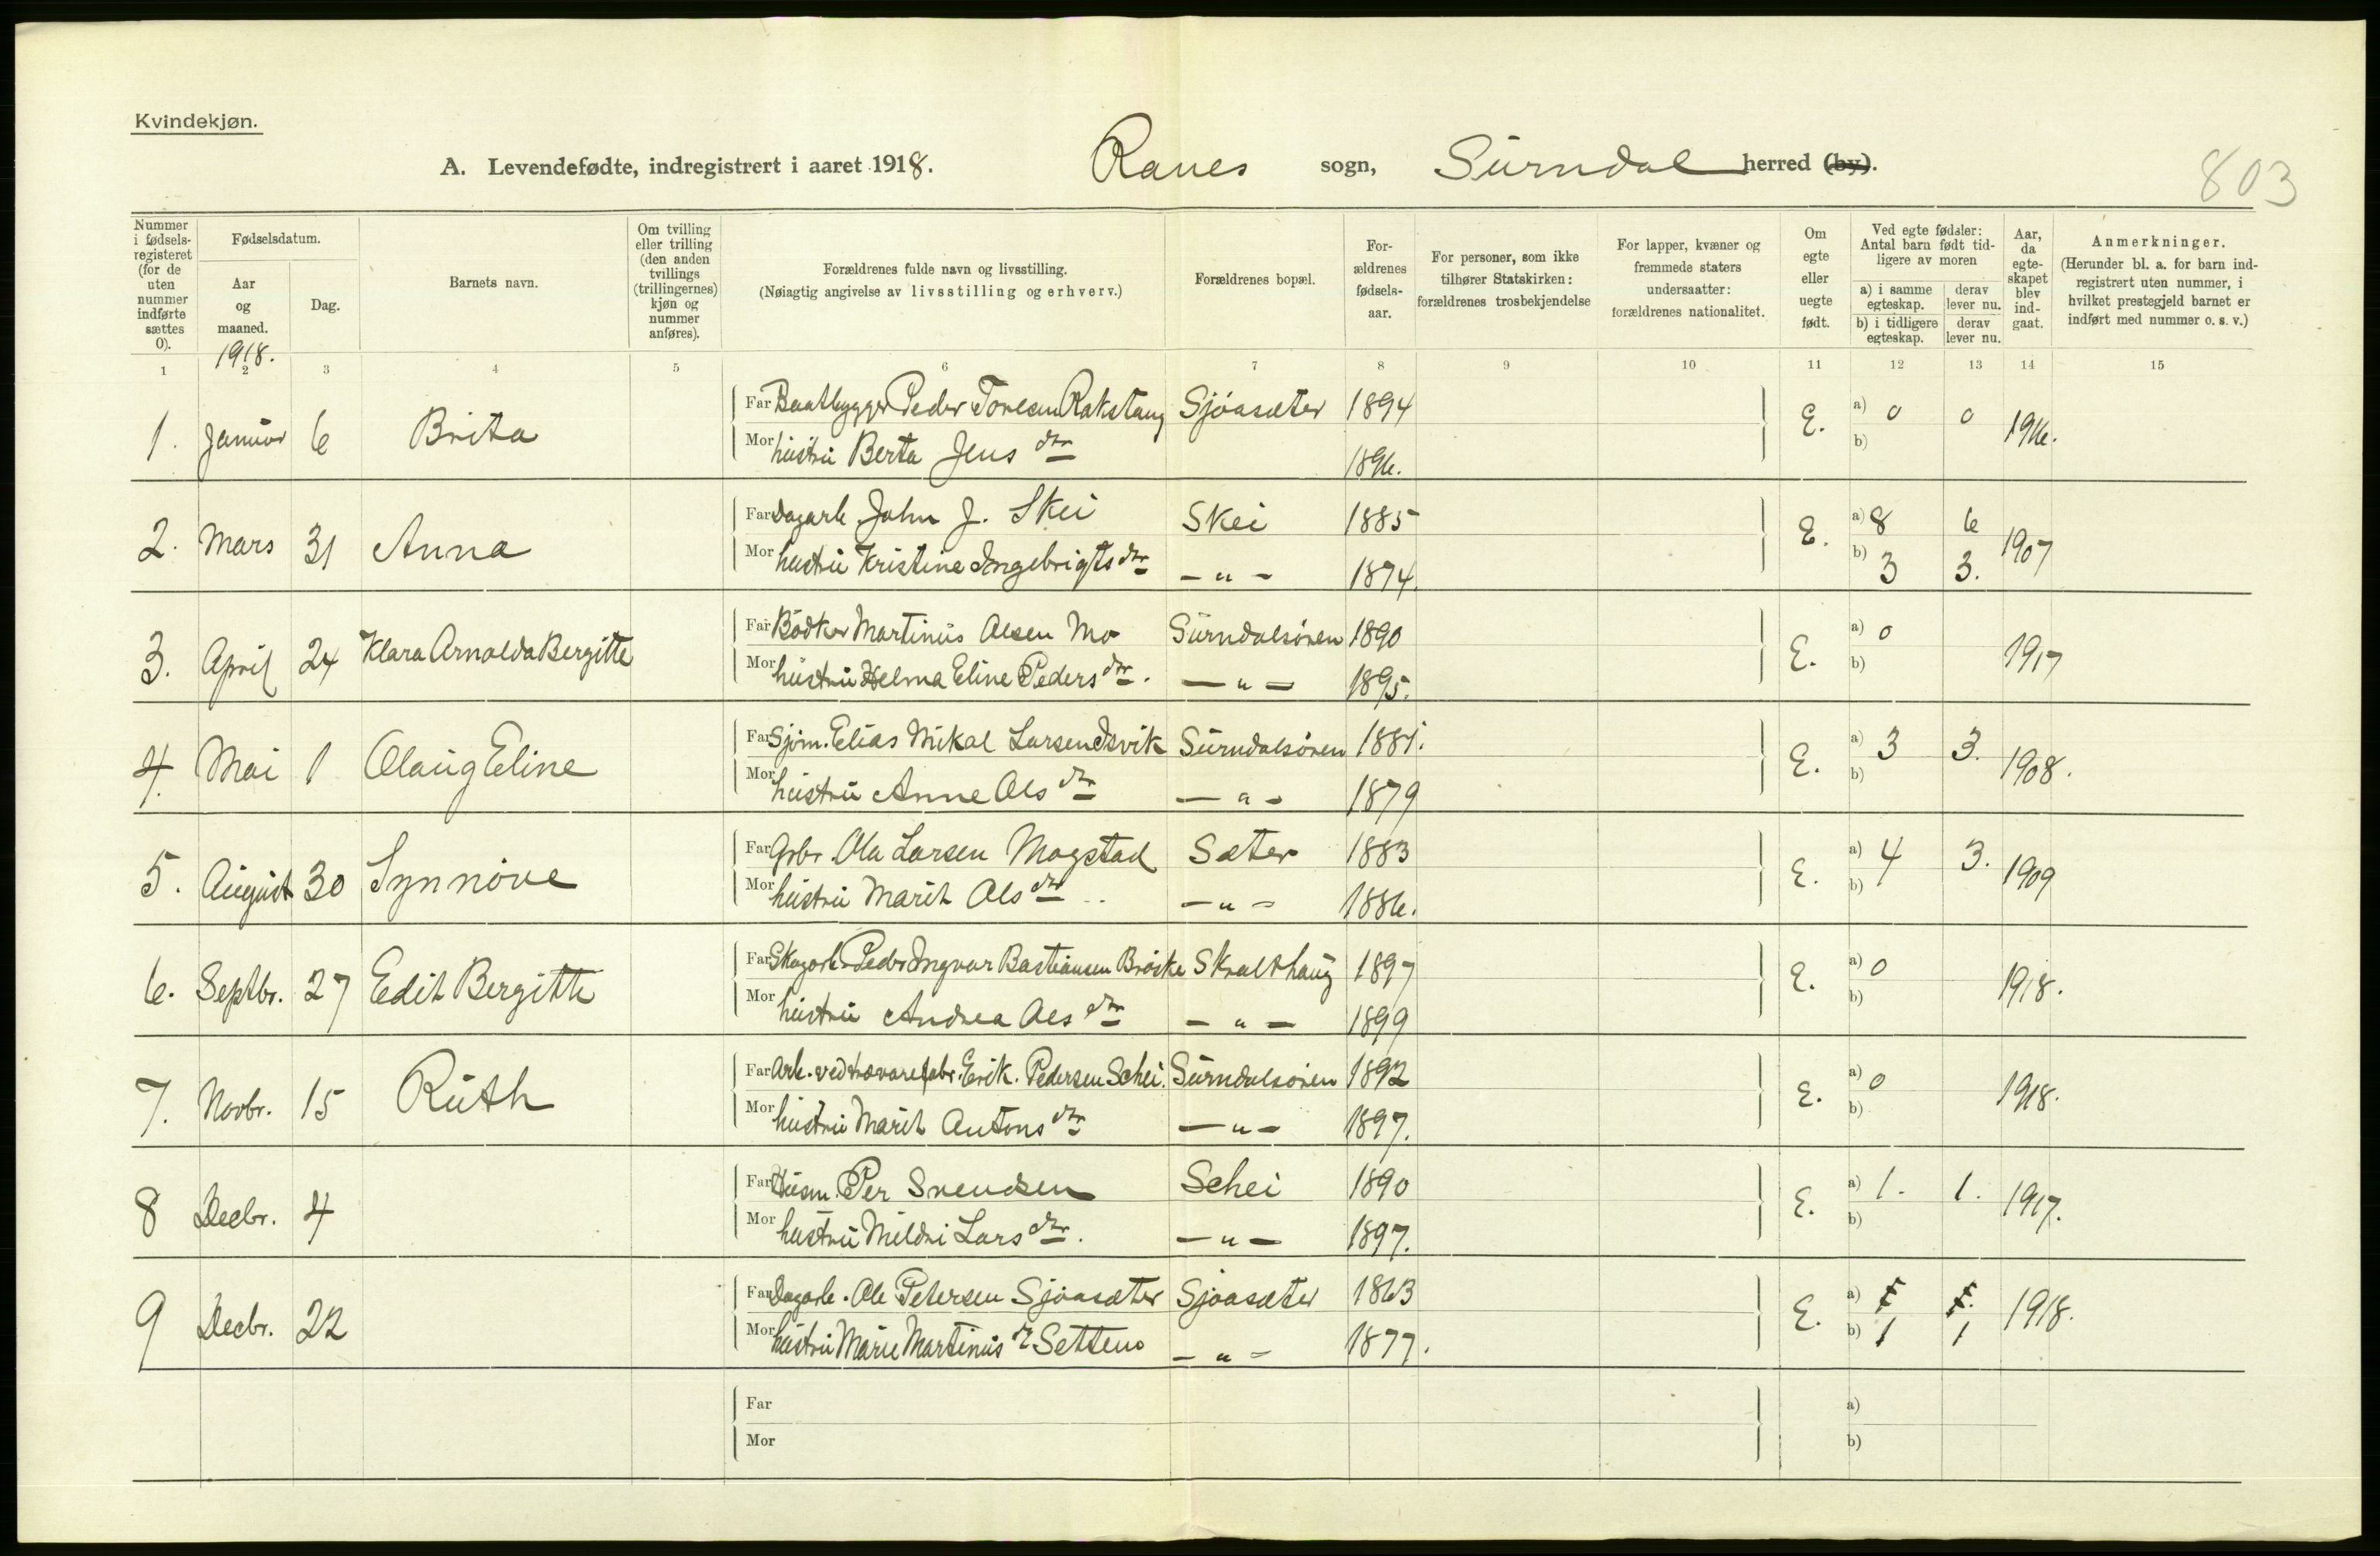 Kvindekjøn.
A. Levendefødte, indregistrert i aaret 1918. Ranes sogn, Surndal herred (by).
803
Nummer i fødsels-registeret (for de uten nummer indførte sættes 0).
Fødselsdatum.
Aar og maaned.
Dag.
Barnets navn.
Om tvilling eller trilling (den anden tvillings (trillingernes) kjøn og nummer anføres).
Forældrenes fulde navn og livsstilling.
(Nøiagtig angivelse av livsstilling og erhverv.)
Forældrenes bopæl.
For-ældrenes fødsels-aar.
For personer, som ikke tilhører Statskirken: forældrenes trosbekjendelse
For lapper, kvæner og fremmede staters undersaatter: forældrenes nationalitet.
Om egte eller uegte født.
Ved egte fødsler: Antal barn født tid-ligere av moren
a) i samme egteskap.
derav lever nu.
b) i tidligere egteskap.
derav lever nu.
Aar, da egte-skapet blev ind-gaat.
Anmerkninger.
(Herunder bl. a. for barn ind-registrert uten nummer, i hvilket prestegjeld barnet er indført med nummer o. s. v.)
1918.
1 2 3 4 5 6 7 8 9 10 11 12 13 14 15
1. Januar 6 Brita Far Baatbygger Peder Toresen Rakstang Sjöasæter 1894 E. a) 0 0 1916.
Mor hustru Berta Jens dtr 1896. b)
2. Mars 31 Anna Far Dagarb. John J. Skei Skei 1885 E. a) 8 6 1907
Mor hustru Kristine Ingebrigts dtr — " — 1874. b) 3 3.
3. April 24 Klara Arnolda Bergitte Far Bödker Martinus Olsen Mo Surndalsören 1890 E. a) 0 1917
Mor hustru Helma Eline Peders dtr. — " — 1895. b)
4. Mai 1 Olaug Eline Far Sjöm. Elias Mikal Larsen Isvik Surndalsören 1881. E. a) 3 3. 1908.
Mor hustru Anne Ols dtr — " — 1879 b)
5. August 30 Synnöve Far Grbr. Ola Larsen Mogstad Sæter 1883 E. a) 4 3. 1909
Mor hustru Marit Ols dtr — " — 1886. b)
6. Septbr. 27 Edit Bergitte Far Skogarb. Peder Ingvar Bastiansen Bröske Skralthaug 1897 E. a) 0 1918.
Mor hustru Andrea Ols dtr — " — 1899 b)
7. Novbr. 15 Ruth Far Arb. ved trævarefabr. Erik Pedersen Schei. Surndalsören 1892 E. a) 0 1918.
Mor hustru Marit Antons dtr — " — 1897. b)
8 Decbr. 4 Far Husm. Per Svendsen Schei 1890 E. a) 1. 1. 1917.
Mor hustru Mildri Lars dtr. — " — 1897. b)
9 Decbr. 22 Far Dagarb. Ole Petersen Sjöasæter Sjöasæter 1863 E. a) 1918.
Mor hustru Marie Martinus dr Settem — " — 1877. b) 1 1
Far a)
Mor b)